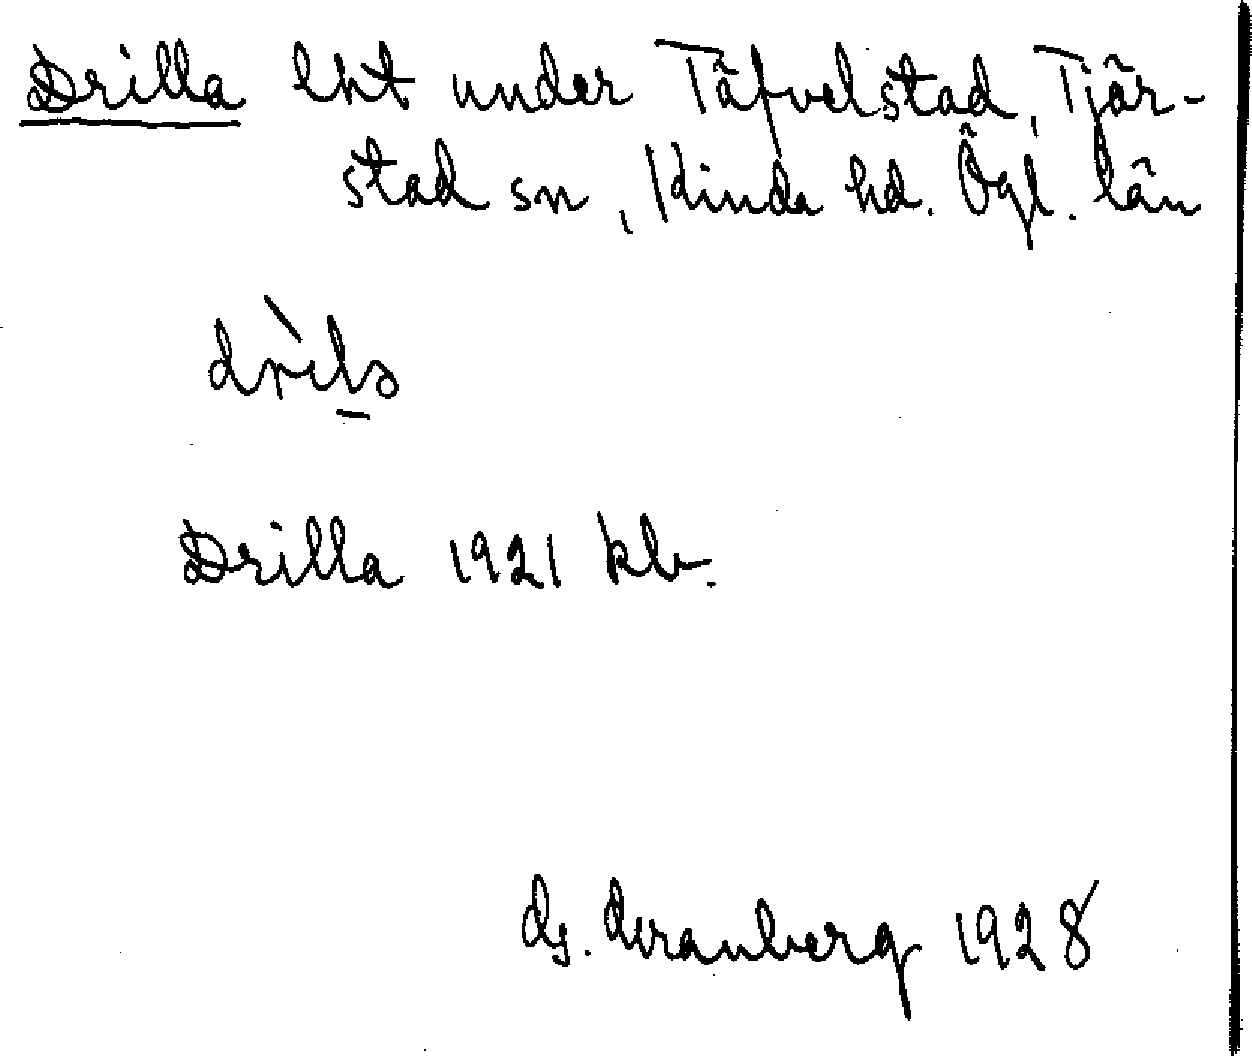 Drilla lht under Täfvelstad, Tjär-
stad sn, Kinda hd. Ögl. län
drìla
Drilla 1921 kb.
1928